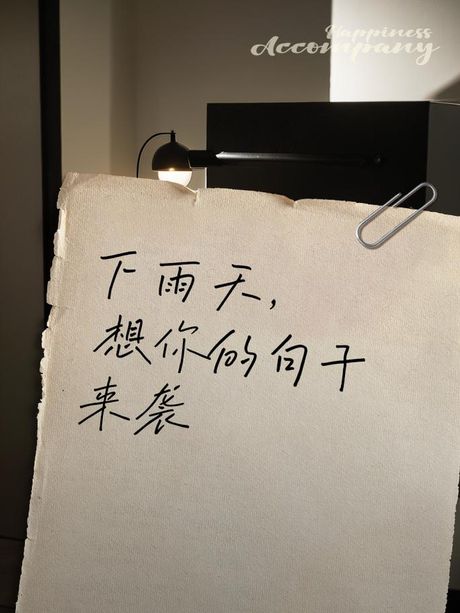 Happiness
Accompany
下雨天，
想你的句子
来袭